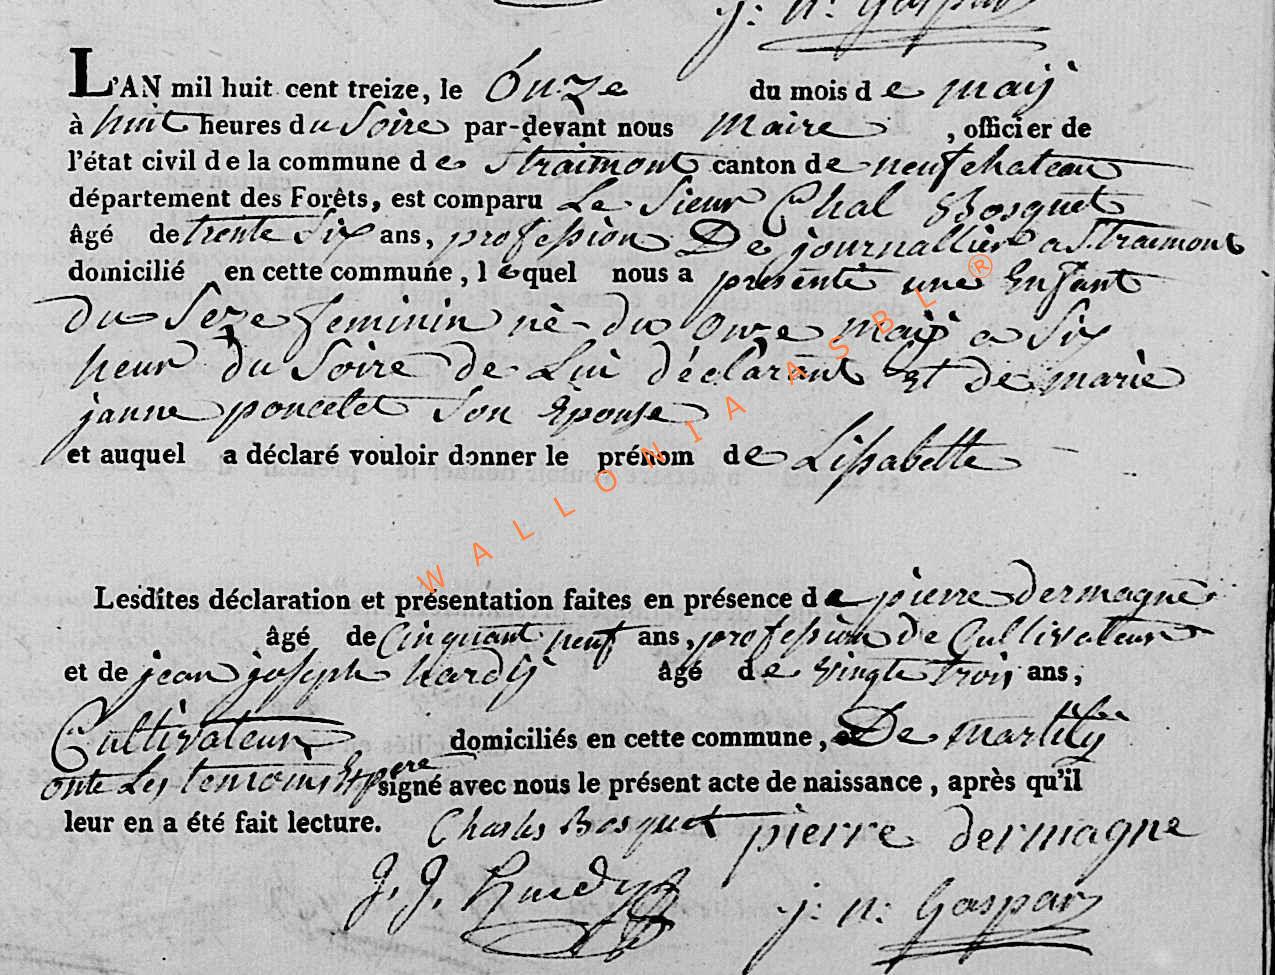 j: n: Gaspar
L'AN mil huit cent treize, le onze du mois de maij
à huit heures du Soire par-devant nous maire, officier de
l'état civil de la commune de Straimont canton de neufchateau
département des Forêts, est comparu Le Sieur Chal Bosquet
âgé de trente Six ans, profession De journallier a Straimont
domicilié en cette commune, lequel nous a presenté une Enfant
du Seze feminin né du onze maij a Six
heur du Soire de Lui déclarant Et de marie
janne poncelet Son Epouse
et auquel a déclaré vouloir donner le prénom de Lisabette
Lesdites déclaration et présentation faites en présence de pierre dermagne
âgé de Cinquant neuf ans, profession de Cultivateur
et de jean joseph hardij âgé de vingte trois ans,
Cultivateur domiciliés en cette commune, De martilij
onte Les temoins Et pere signé avec nous le présent acte de naissance, après qu'il
leur en a été fait lecture. Charles Bosquet pierre dermagne
J. J. Hardy j: n: Gaspar
WALLONIA ASBL ®